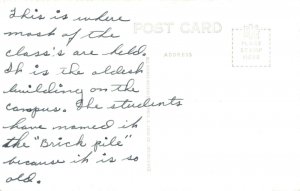 This is where
most of the
class's are held.
It is the oldest
building on the
campus. The students
have named it
the "Brick pile"
because it is so
old.
POST CARD
ADDRESS
PLACE
STAMP
HERE